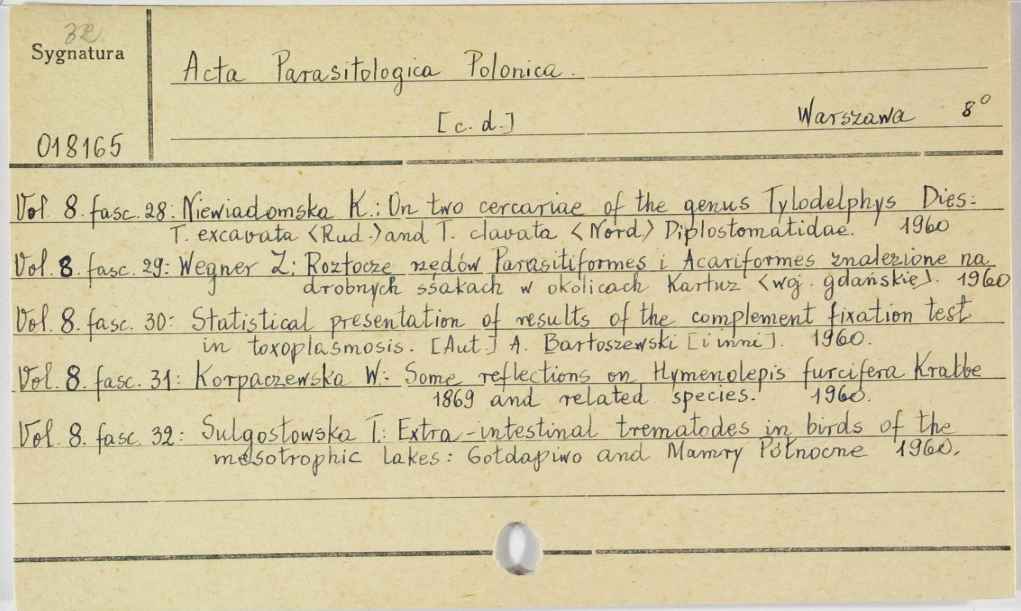 32
Sygnatura
Acta Parasitologica Polonica.
[c. d.] Warszawa 8°
018165
Vol 8. fasc. 28: Niewiadomska K.: On two cercariae of the genus Tylodelphys Dies:
T. excavata <Rud.> and T. clavata <Nord> Diplostomatidae. 1960
Vol. 8. fasc. 29: Wegner Z: Roztocze rzędów Parasitiformes i Acariformes znalezione na
drobnych ssakach w okolicach Kartuz <woj. gdańskie>. 1960
Vol. 8. fasc. 30: Statistical presentation of results of the complement fixation test
in toxoplasmosis. [Aut.] A. Bartoszewski [i inni]. 1960.
Vol. 8. fasc. 31: Korpaczewska W: Some reflections on Hymenolepis furcifera Krabbe
1869 and related species. 1960.
Vol. 8. fasc. 32: Sulgostowska T.: Extra-intestinal trematodes in birds of the
mesotrophic lakes: Gołdapiwo and Mamry Północne 1960.